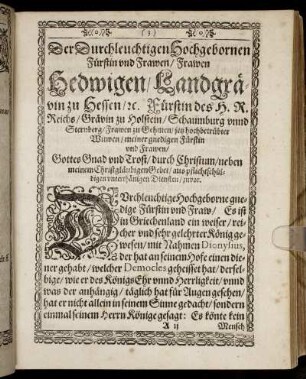 ( 3 )
Der Durchleuchtigen Hochgebornen
Fürstin vnd Frawen/ Frawen
Hedwigen/ Landgrä
vin zu Hessen/ ꝛc. Fürstin des H. R.
Reichs/ Grävin zu Holstein/ Schaumburg vnnd
Sternberg/ Frawen zu Gehmen/ jtzo hochbetrübter
Witwen/ meiner gnedigen Fürstin
vnd Frawen/
Gottes Gnad vnd Trost/ durch Christum/ neben
meinem Christgläubigen Gebet/ aus pflichtschül-
digen vnterthänigen Diensten/ zuvor.
DVrchleuchtige Hochgeborne gne-
dige Fürstin vnd Fraw/ Es ist
in Griechenland ein weiser/ rei-
cher vnd sehr gelehrter König ge-
wesen/ mit Nahmen Dionysius,
der hat an seinem Hofe einen die-
ner gehabt/ welcher Democles geheisset hat/ dersel-
bige/ wie er des Königs Ehr vnnd Herrligkeit/ vnnd
was der anhängig/ täglich hat für Augen gesehen/
hat er nicht allein in seinem Sinne gedacht/ sondern
einmal seinem Herrn Könige gesagt: Es könte kein
A ij Mensch